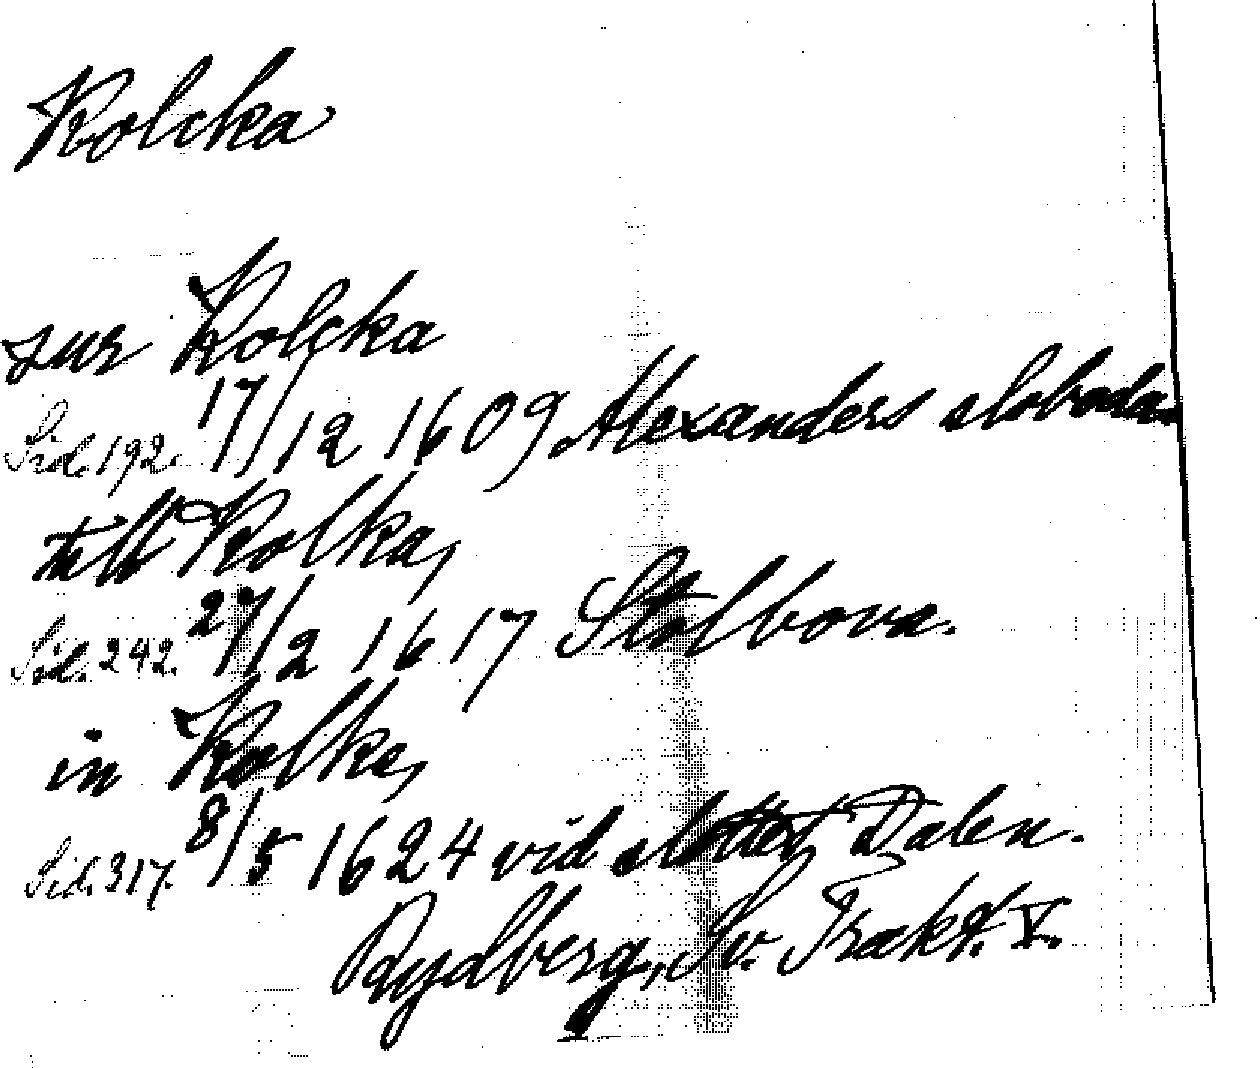 Kolcka
zur Kolcka
Sid. 192. 17/12 1609 Alexanders sloboda.
till Kolka,
Sid. 242. 27/2 1617 Stolbova.
in Kolka,
Sid. 317. 8/5 1624 vid slottet Dalen.
Rydberg, Sv. Trakt. V.